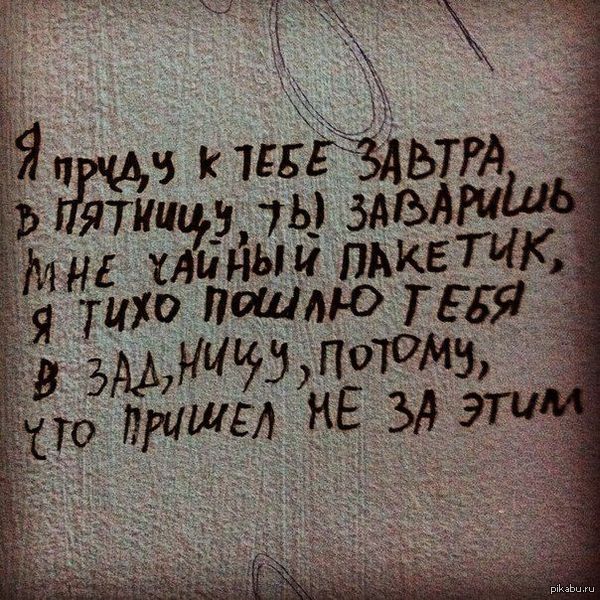 Я приду к тебе завтра,
в пятницу, ты заваришь
мне чайный пакетик,
я тихо пошлю тебя
в зад,ницу, потому,
что пришел не за этим
pikabu.ru